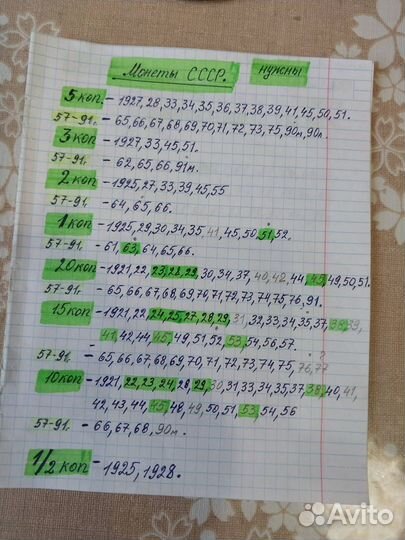 Монеты СССР. нужны
5 коп. - 1927, 28, 33, 34, 35, 36, 37, 38, 39, 41, 45, 50, 51.
57-91. - 65, 66, 67, 68, 69, 70, 71, 72, 73, 75, 90л, 90м.
3 коп - 1927, 33, 45, 51.
57-91. - 62, 65, 66, 91м.
2 коп - 1925, 27, 33, 39, 45, 55
57-91. - 64, 65, 66.
1 коп - 1925, 29, 30, 34, 35, 41, 45, 50, 51, 52.
57-91. - 61, 63, 64, 65, 66.
20 коп - 1921, 22, 23, 28, 29, 30, 34, 37, 40, 42, 44, 45, 49, 50, 51.
57-91. - 65, 66, 67, 68, 69, 70, 71, 72, 73, 74, 75, 76, 91.
15 коп - 1921, 22, 24, 25, 27, 28, 29, 31, 32, 33, 34, 35, 37, 38, 39,
- 41, 42, 44, 45, 49, 51, 52, 53, 54, 56, 57.
57-91. - 65, 66, 67, 68, 69, 70, 71, 72, 73, 74, 75, 76, 77 ?
10 коп - 1921, 22, 23, 24, 28, 29, 30, 31, 33, 34, 35, 37, 38, 40, 41,
42, 43, 44, 45, 48, 49, 50, 51, 53, 54, 56
57-91. - 66, 67, 68, 90м.
1/2 коп - 1925, 1928.
Avito